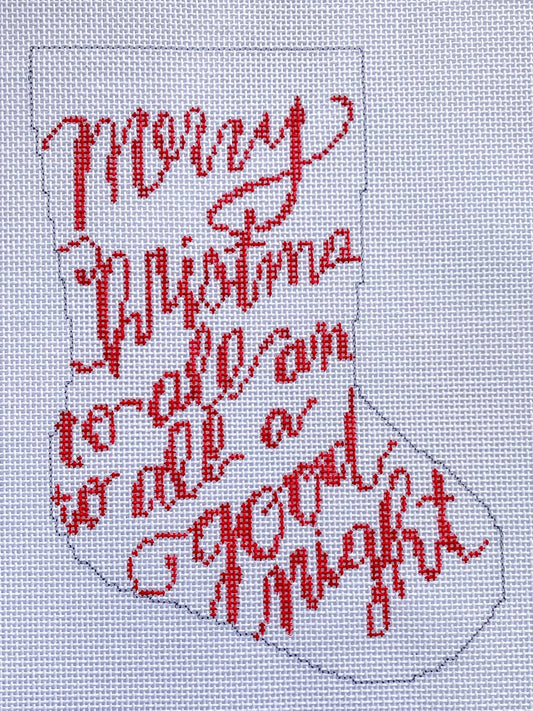 Merry
hristma
to all an
to all a
good
night